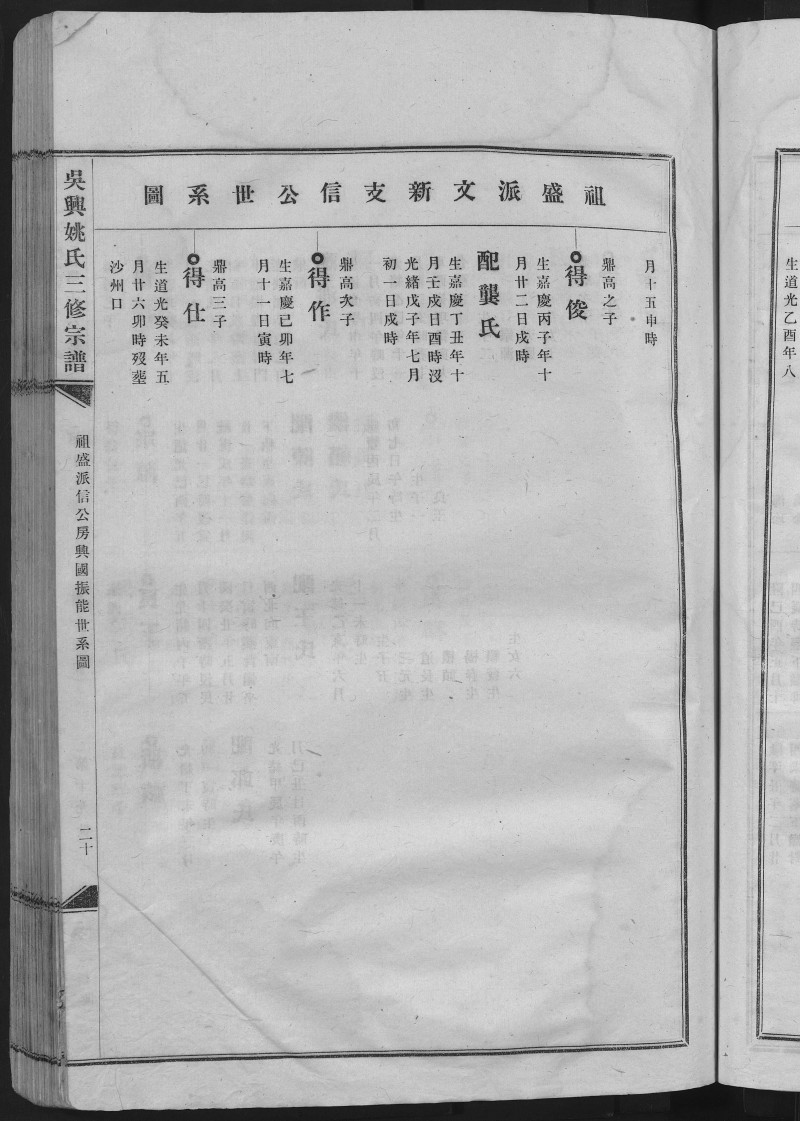 生道光乙酉年八
祖盛派文新支信公世系圖
月十五申時
鼎高之子
得俊
生嘉慶丙子年十
月廿二日戌時
配龔氏
生嘉慶丁丑年十
月壬戌日酉時沒
光緒戊子年七月
初一日戌時
鼎高次子
得作
生嘉慶己卯年七
月十一日寅時
鼎高三子
得仕
生道光癸未年五
月廿六卯時歿塟
沙州口
吳興姚氏三修宗譜
祖盛派信公房興國振能世系圖
二十